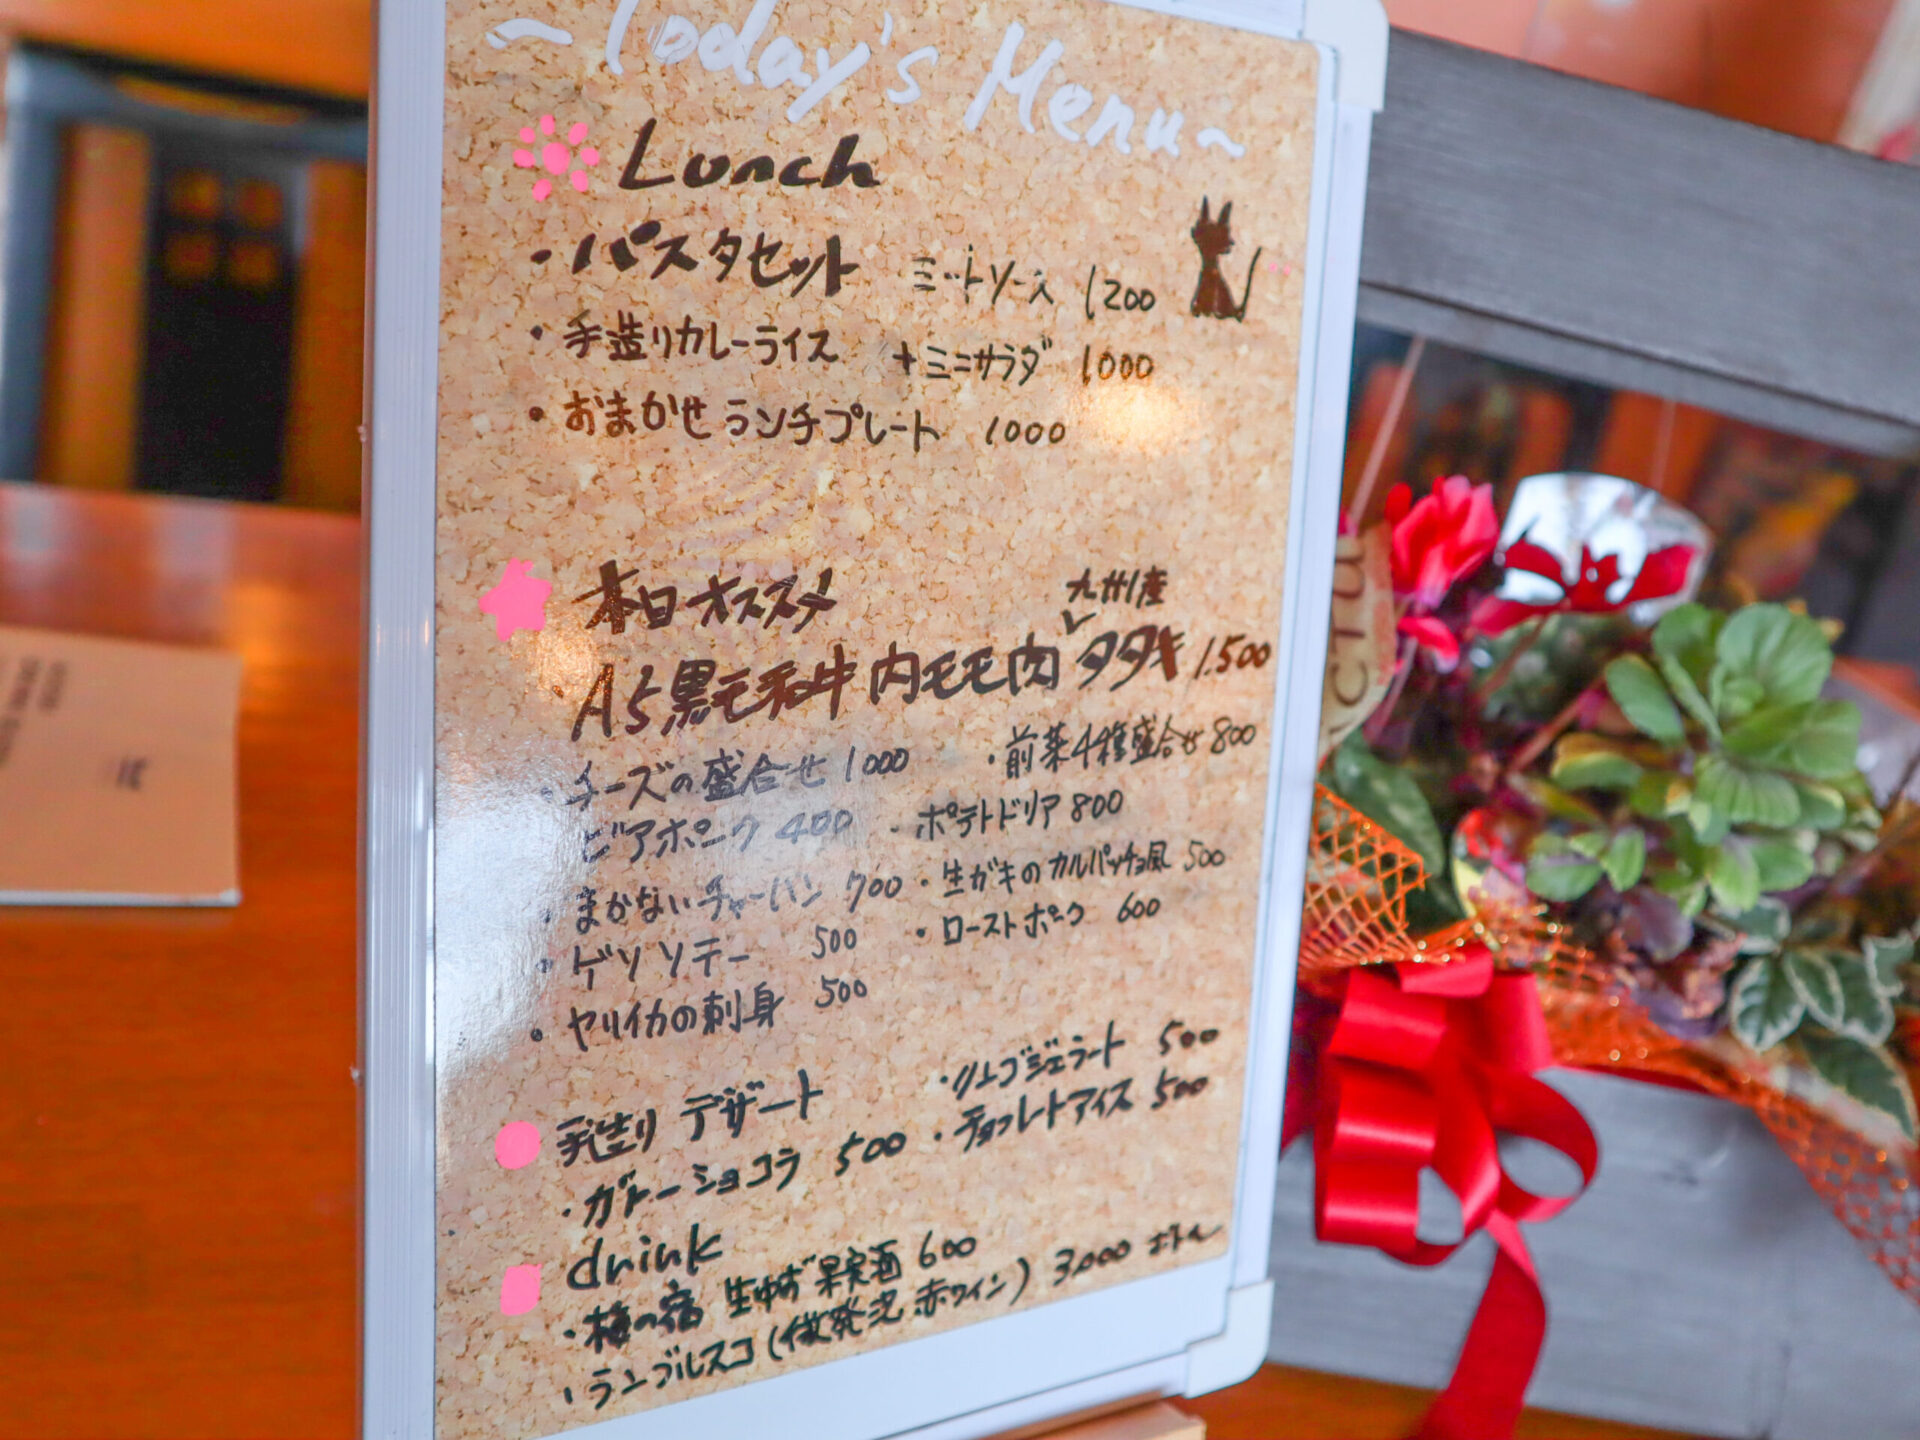 ~Today's Menu~
Lunch
・パスタセット ミートソース 1200
・手造りカレーライス +ミニサラダ 1000
・おまかせランチプレート 1000
本日オススメ
九州産
・A5黒毛和牛 内モモ肉 タタキ 1.500
・チーズの盛合せ 1000 ・前菜4種盛合せ 800
ビアポーク 400 ・ポテトドリア 800
・まかないチャーハン 700 ・生ガキのカルパッチョ風 500
・ゲソソテー 500 ・ローストポーク 600
・ヤリイカの刺身 500
手造り デザート ・リンゴジェラート 500
・ガトーショコラ 500 ・チョコレートアイス 500
drink
・梅の宿 生ゆず果実酒 600
・ランブルスコ(微発泡 赤ワイン) 3,000 ボトル